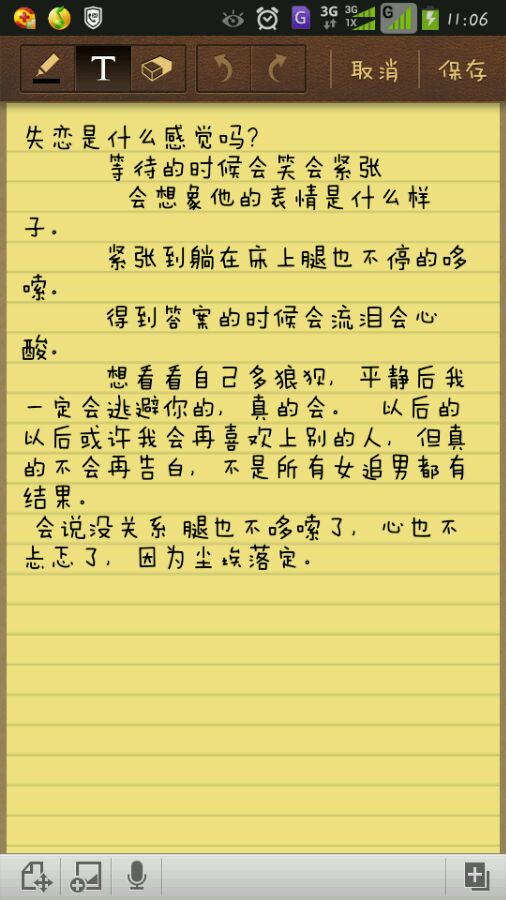 3G
3G
1X
G
G
11:06
T
取消
保存
失恋是什么感觉吗?
等待的时候会笑会紧张
会想象他的表情是什么样
子.
紧张到躺在床上腿也不停的哆
嗦.
得到答案的时候会流泪会心
酸.
想看看自己多狼狈，平静后我
一定会逃避你的，真的会。 以后的
以后或许我会再喜欢上别的人，但真
的不会再告白，不是所有女追男都有
结果。
会说没关系 腿也不哆嗦了，心也不
忐忑了，因为尘埃落定。